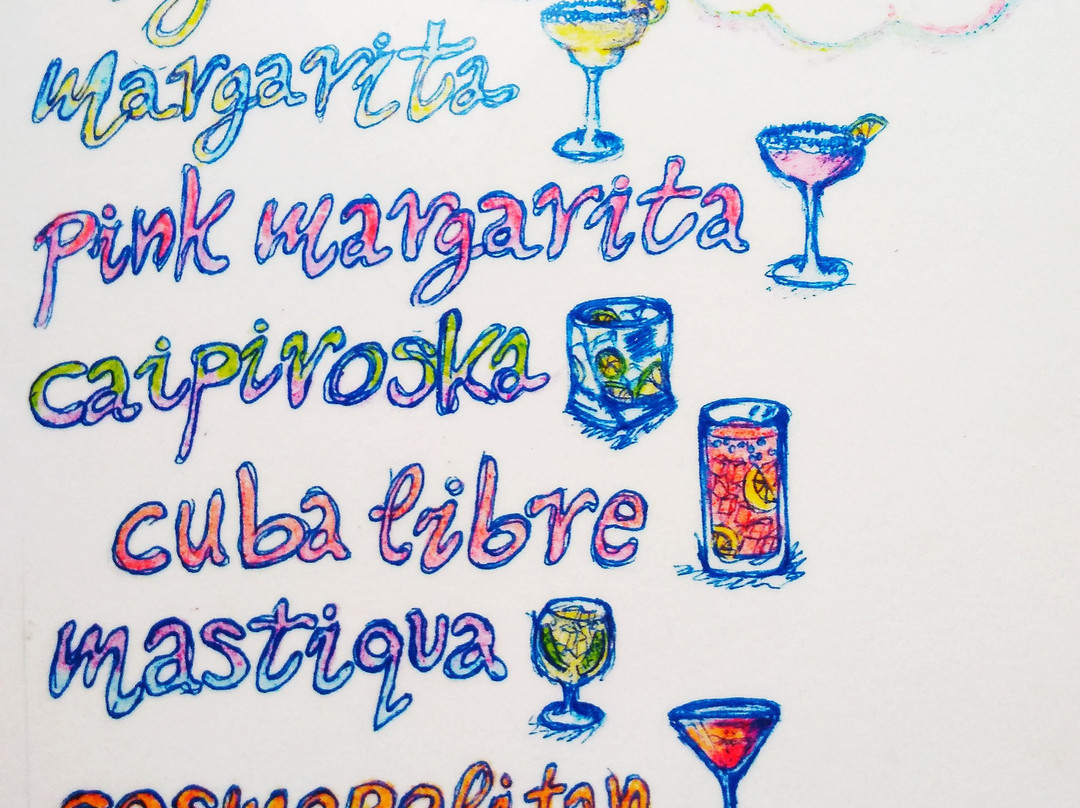 margarita
pink margarita
caipiroska
cuba libre
mastiqua
cosmopolitan